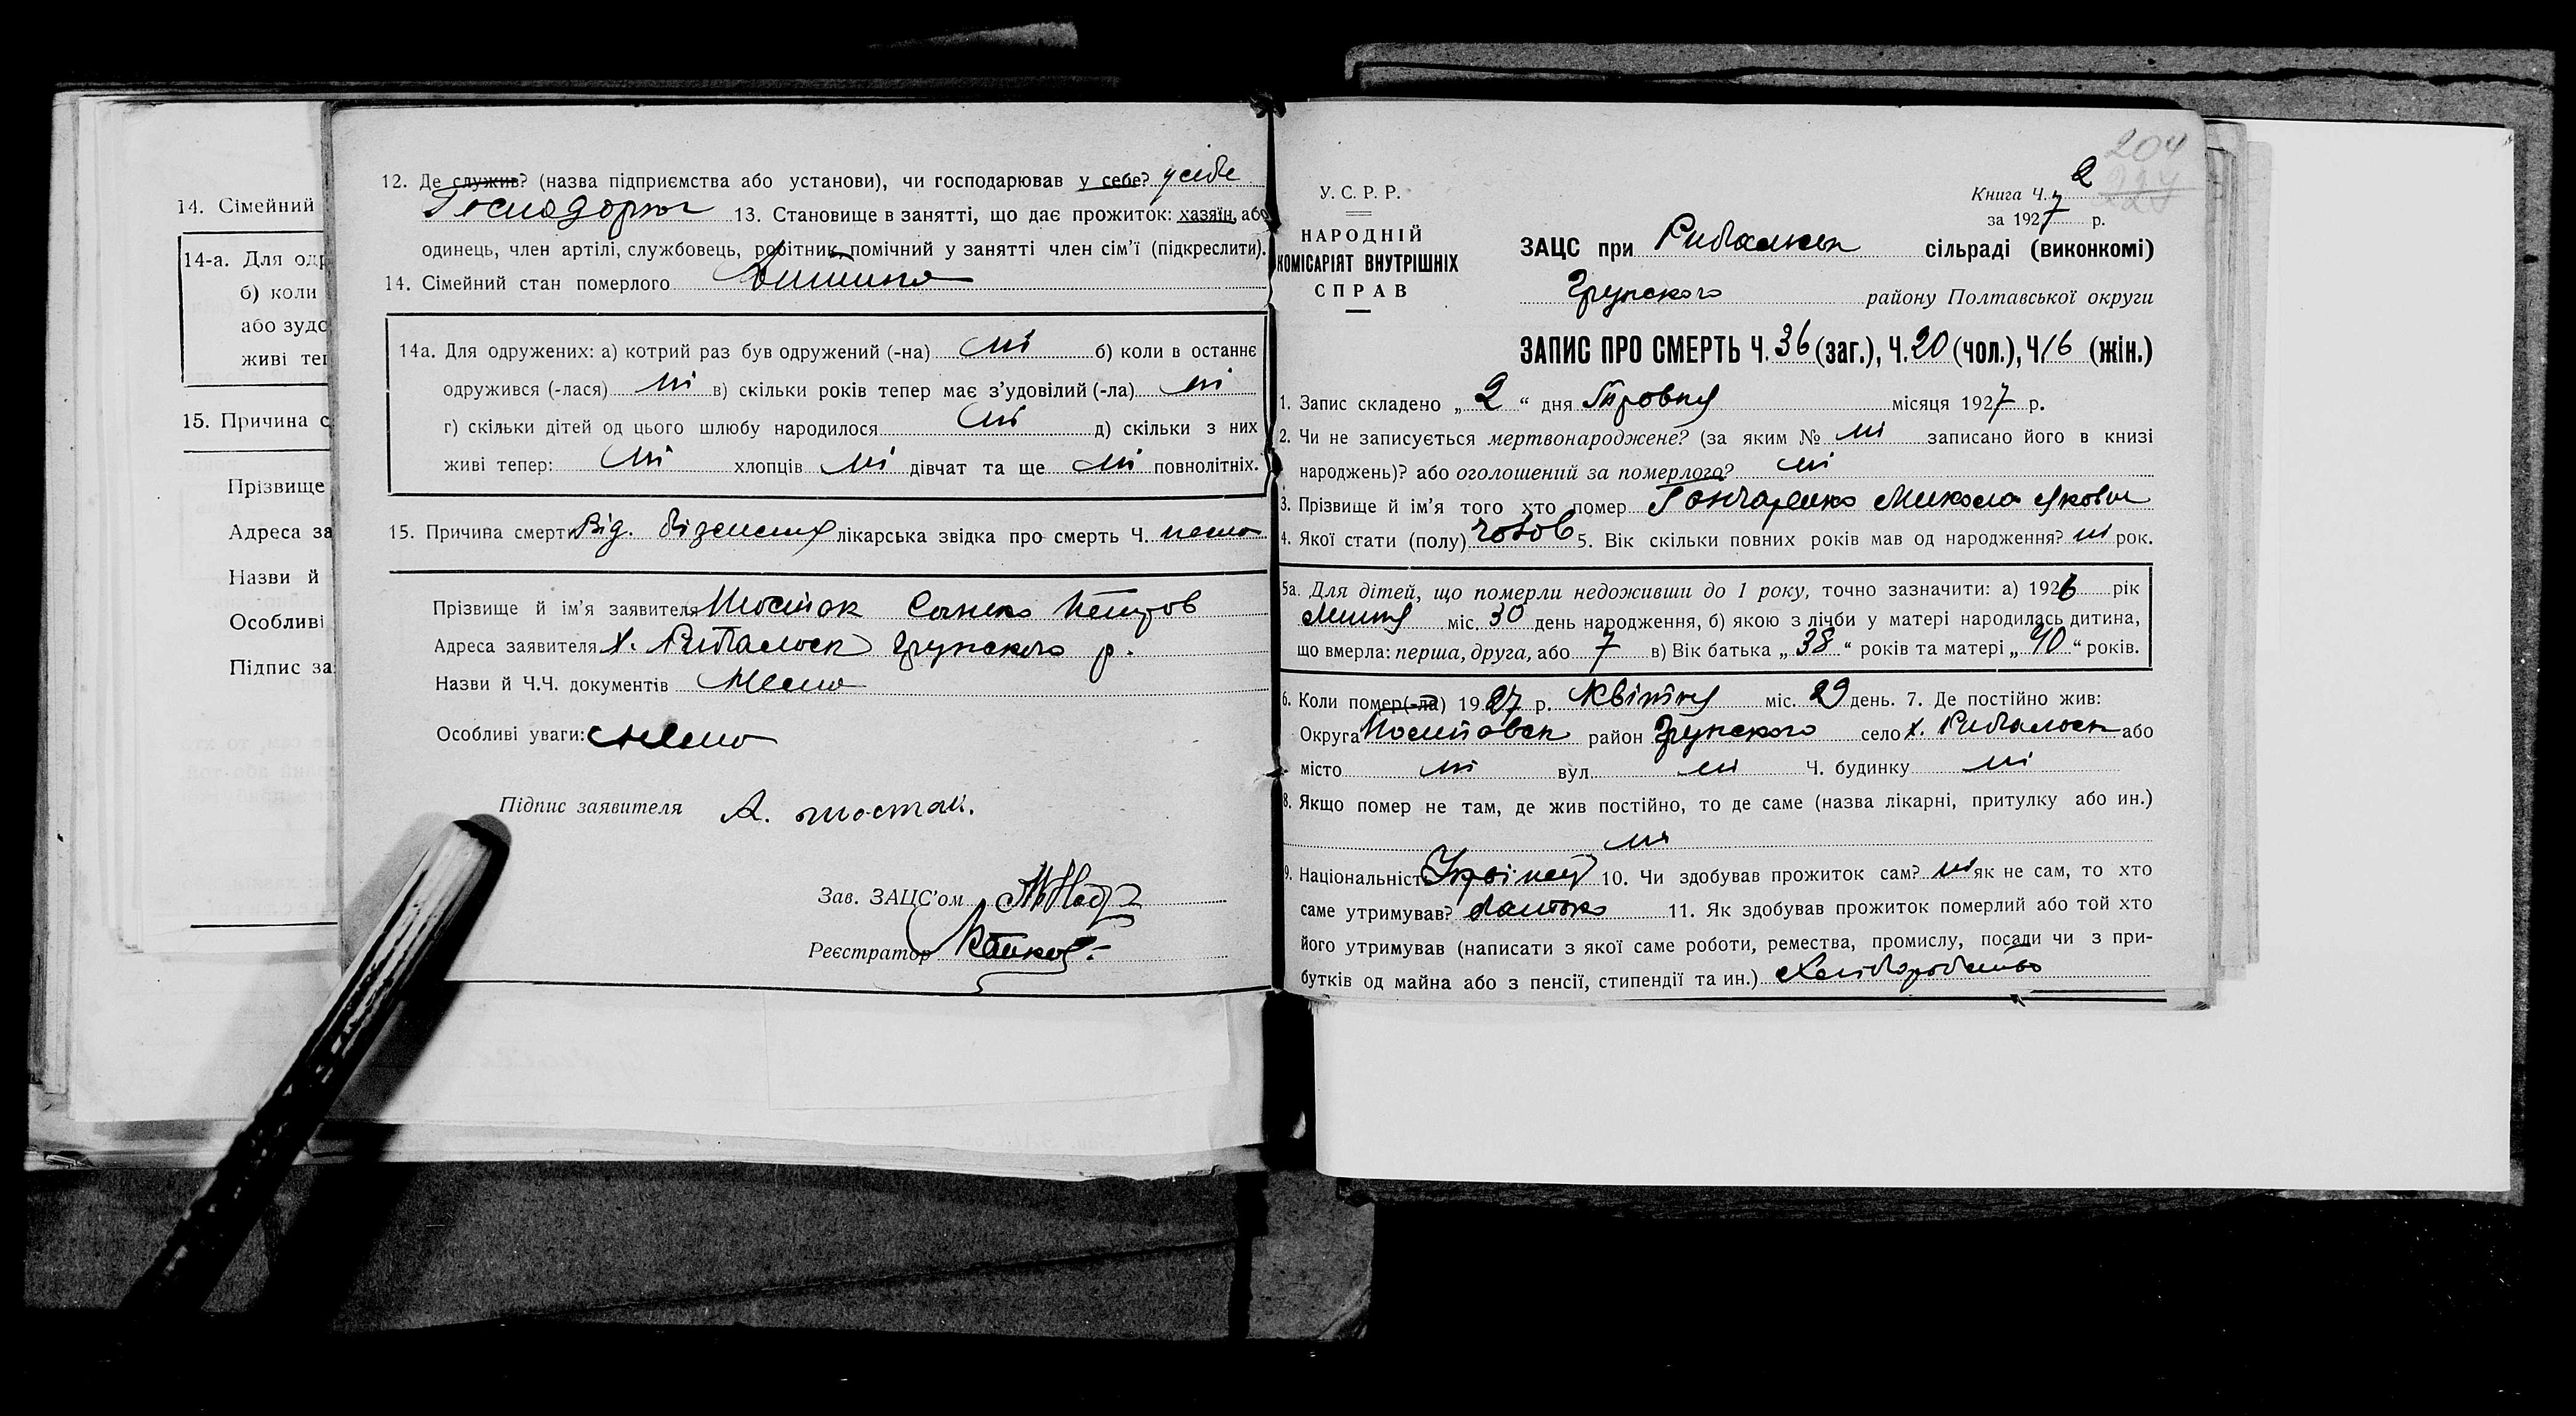 14. Сімейний
14-а. Для одр
б) коли
або зудо
живі теп
15. Причина с
Прізвище
Адреса за
Назви й
Особливі
Підпис за
12. Де служив? (назва підприємства або установи), чи господарював у себе? у себе
13. Становище в занятті, що дає прожиток: хазяїн, або
одинець, член артілі, службовець, робітник, помічний у занятті член сім'ї (підкреслити).
14. Сімейний стан померлого Дитина
14а. Для одружених: а) котрий раз був одружений (-на) ні б) коли в останнє
одружився (-лася) ні в) скільки років тепер має з'удовілий (-ла) ні
г) скільки дітей од цього шлюбу народилося ні д) скільки з них
живі тепер: ні хлопців ні дівчат та ще ні повнолітніх.
15. Причина смерти Від лікарська звідка про смерть Ч. нема
Прізвище й ім'я заявителя Шостак Петров
Адреса заявителя х. Рибалоск Грунского р.
Назви й Ч.Ч. документів Нема
Особливі уваги: Нема
Підпис заявителя А. шостак.
Зав. ЗАЦС'ом
Реєстратор
204
У. С. Р. Р.
НАРОДНІЙ
КОМІСАРІЯТ ВНУТРІШНІХ
СПРАВ
Книга Ч. 2
за 1927 р.
ЗАЦС при сільраді (виконкомі)
Грунского району Полтавської округи
ЗАПИС ПРО СМЕРТЬ Ч. 36 (заг.), Ч. 20 (чол.), Ч 16 (жін.)
1. Запис складено „ 2 “ дня Травня місяця 1927 р.
2. Чи не записується мертвонароджене? (за яким № ні записано його в книзі
народжень)? або оголошений за померлого? ні
3. Прізвище й ім'я того хто помер Гончаренко Микола Якович
4. Якої стати (полу) чолов 5. Вік скільки повних років мав од народження? ні рок.
5а. Для дітей, що померли недоживши до 1 року, точно зазначити: а) 1926 рік
міс. 30 день народження, б) якою з лічби у матері народилась дитина,
що вмерла: перша, друга, або 7 в) Вік батька „ 38 “ років та матері „ 40 “ років.
6. Коли помер(-ла) 1927 р. Квітня міс. 29 день. 7. Де постійно жив:
Округа район Грунского село х. Рибалоск або
місто ні вул. ні Ч. будинку ні
8. Якщо помер не там, де жив постійно, то де саме (назва лікарні, притулку або ин.)
ні
9. Національність 10. Чи здобував прожиток сам? ні як не сам, то хто
саме утримував? батько 11. Як здобував прожиток померлий або той хто
його утримував (написати з якої саме роботи, ремества, промислу, посади чи з при-
бутків од майна або з пенсії, стипендії та ин.) Хліборобство